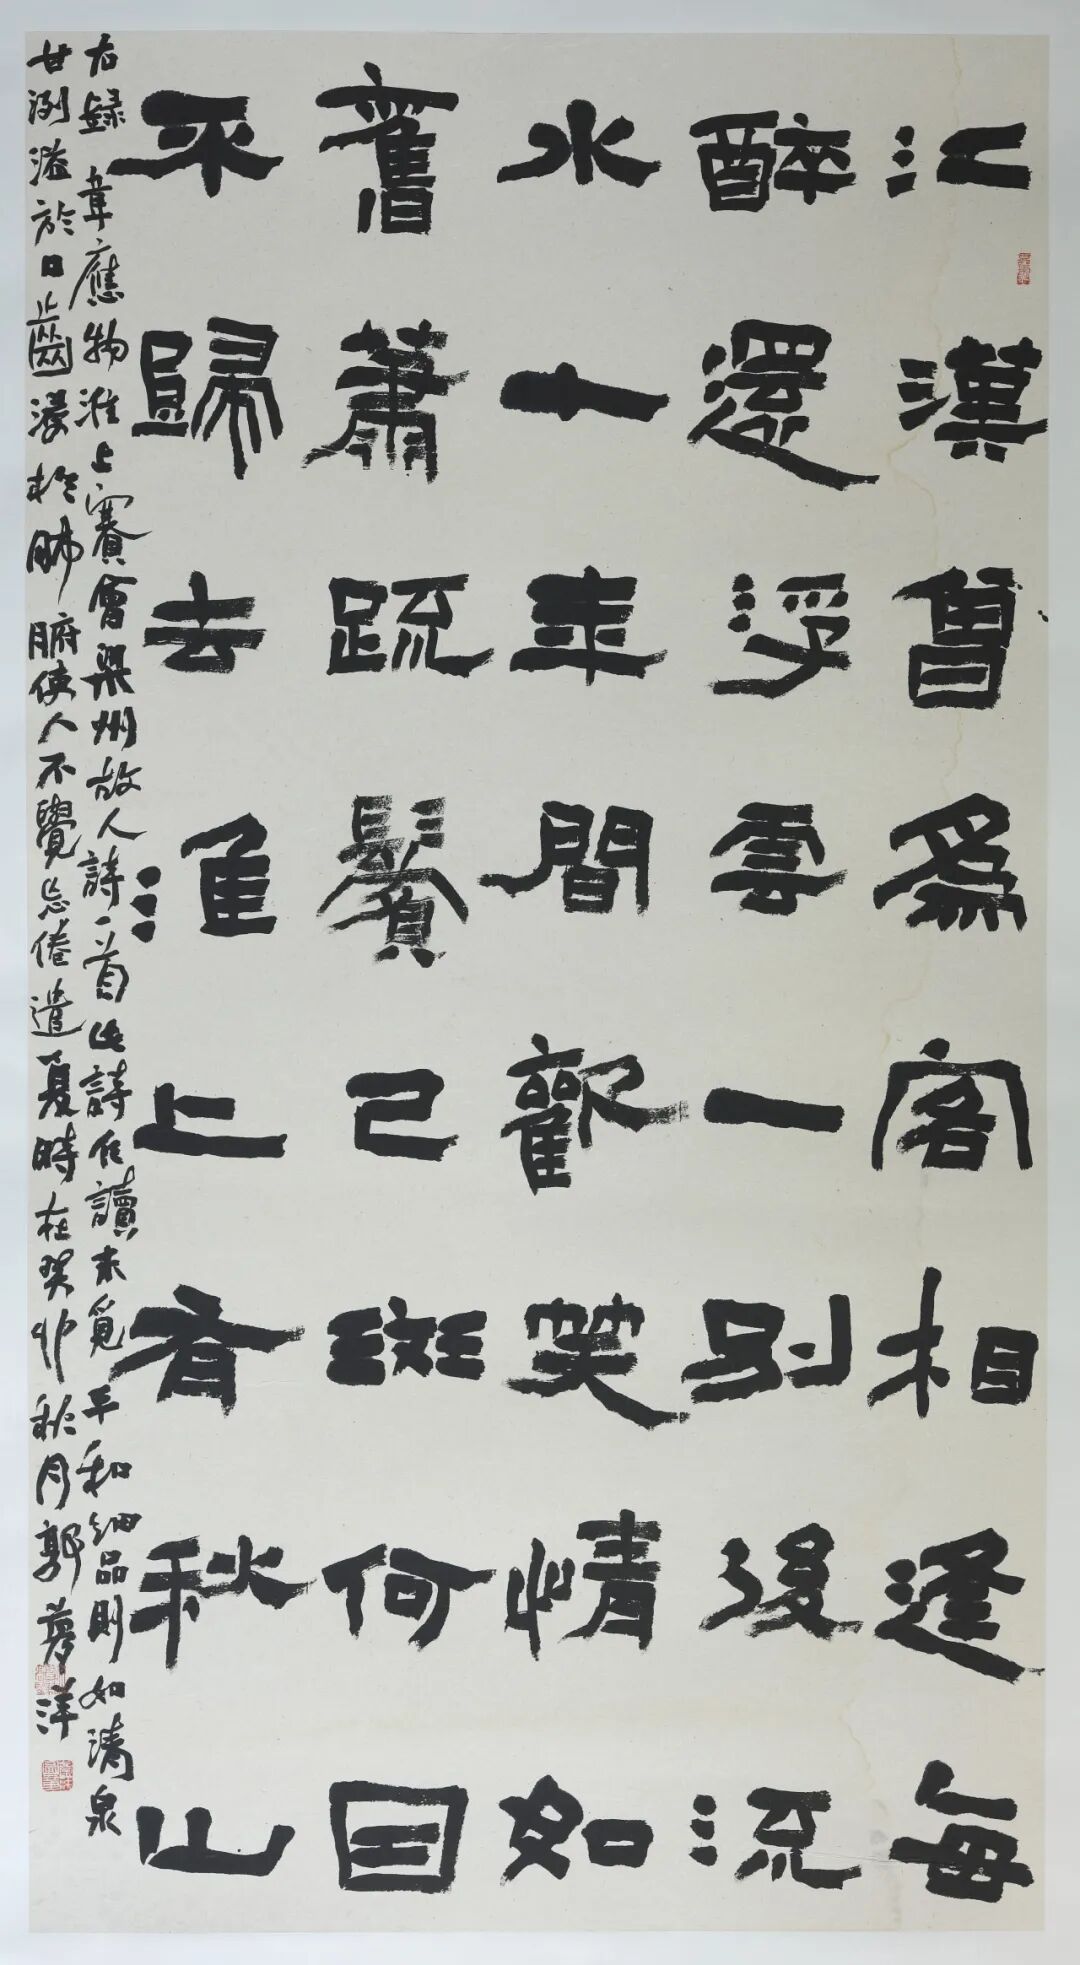 江漢曾爲客相逢每
醉還浮雲一別後流
水十年間歡笑情如
舊蕭疏鬢已斑何因
不歸去淮上有秋山
右錄韋應物淮上賽會梁州故人詩一首此詩讀未覓平和細品則如清泉
甘洌溢於口齒浸於肺腑使人不覺忘倦遣夏時在癸卯秋月郭夢洋